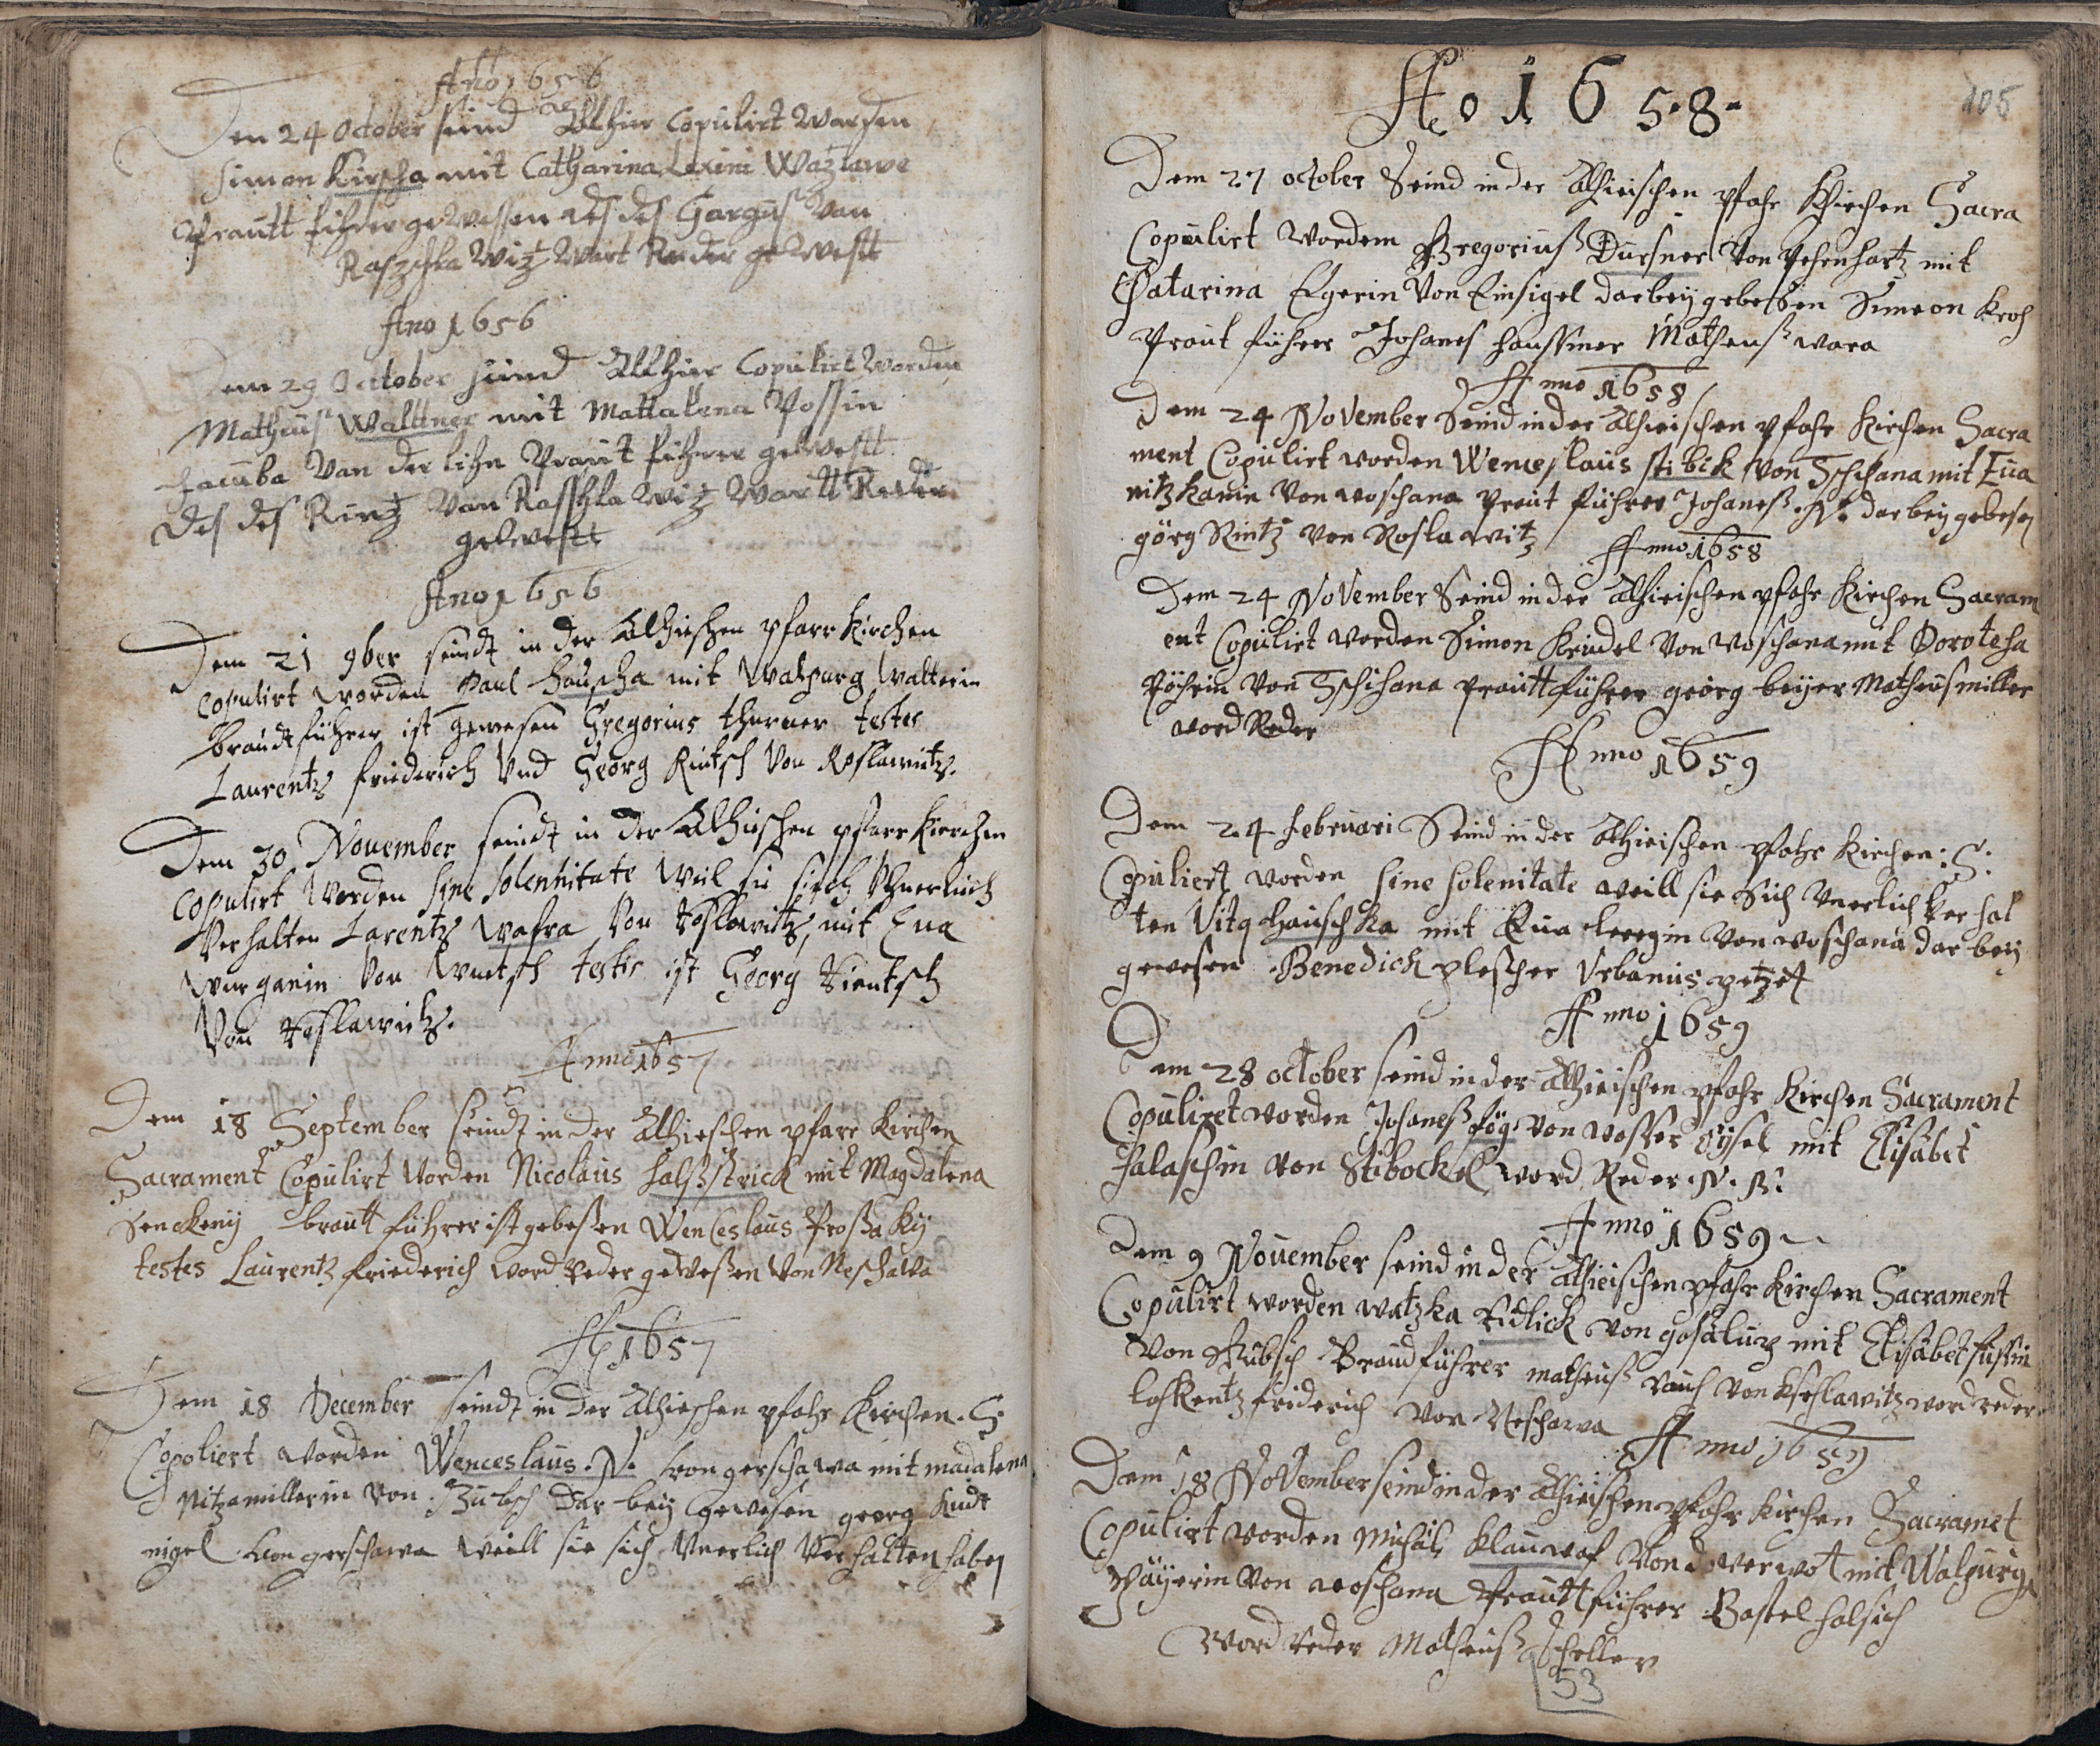 Ano 1656
Den 24 October seind Alhier Copulirt Warden
Simon Kirscha mit Catharina Lexini Wazlawe
Prautt fihrer geWessen des des Gargus Van
Raszchla Witz Wart Reder geWestt
Ano 1656
Dem 29 October seind Allhier Copulirt Worden
Matheus Walttner mit Mattalena Possin
Jacuba Van der lihn Praut fihrer geWestt
des des Rintz Van Rasschla Witz Wartt Reder
geWestt
Ano 1656
Dem 21 9ber seindt in der Alhieschen pfarr Kirchen
copulirt worden Paul Hauscha mit Walpurg Walterin
Braudtführer ist gewesen Gregorius thurner testes
Laurentz Friederich Vnd Georg Rintsch Von Roslawitz.
Dem 30 Nouember seindt in der Alhieschen pfarr Kierchen
copulirt Worden sine solennitate weil sie sich Vnerlich
Verhalten Larentz Wafra Von Roslawitz, mit Eua
Wurganin Von Wuetsch testis ist Georg Rientsch
Von Roslawitz.
Anno 1657
Dem 18 September seindt in der Alhieschen pfarr Kirchen
Sacrament Copulirt Worden Nicolaus halsstrick mit Magdalena
Senckenij brautt führer ist gebeßen Wenceslaus Proßakij
testes Laurentz Friederich word Reder geweßen Von Neschawa
A 1657
Dem 18 December seindt in der Alhieschen pfahr Kirchen. S.
Copoliert worden Wenceslaus. N. von gerschawa mit madalena
Nitzamillerin von Zubesch dar beij gewesen georg
nigel von gerschawa weill sie sich Vnerlich Verhalten haben
105
Ao 1658
Dem 27 october Seind in der Alhieischen pfahr Khirchen Sacra
Copulirt wordem Gregoriuß Dursner Von mit
Chatarina Egerin Von Einsigel darbeij gebesen Simeon Kroh
Praut führer Johanes haussner Matheuß wara
Anno 1658
Dem 24 November Seind in der Alhieischen pfahr Kirchen Sacra
ment Copulirt worden Wenceslaus stibick Von Tschihana mit Eua
nitzkanin Von woschana Praut führer Johaneß. N. darbeij gebesen
görg Rintz von Roslawitz
Anno 1658
Dem 24 November Seind in der Alhieischen pfahr Kirchen Sacram
ent Copulirt worden Simon Keudel Von woschana mit Doroteha
Von Tschihana Prautt führer georg beijer Matheus miller
word Reder
Anno 1659
Dem 24 Februari Seind in der Alhieischen pfahr Kirchen: S:
Copuliert worden sine solenitate weill sie Sich Vnerlich Verhal
ten Vitq Hauschka mit Eua Von woschana dar beij
gewesen Benedick plescher Vrbanus petzelt
Anno 1659
Dem 28 october seind in der Alhieischen pfahr Kirchen Sacrament
Copuliret worden Johaneß Von wosser mit Elisabet
halaschin von Stibockel word Reder. N. N:
Anno 1659
Dem 9 Nouember seind in der Alhieischen pfahr Kirchen Sacrament
Copulirt worden watzka Ridlick von mit Elisabet süssin
von Braudführer matheuß rauch Von word reder
Friderich Von Neschawa
Anno 1659
Dem 18 November seind in der Alhieischen pfahr Kirchen Sacramet
Copulirt worden Michäl Klauwaf Von mit Walpurga
Päyerin Von woschana Prautt führer Bastel halsich
word reder Matheuß scheller
53